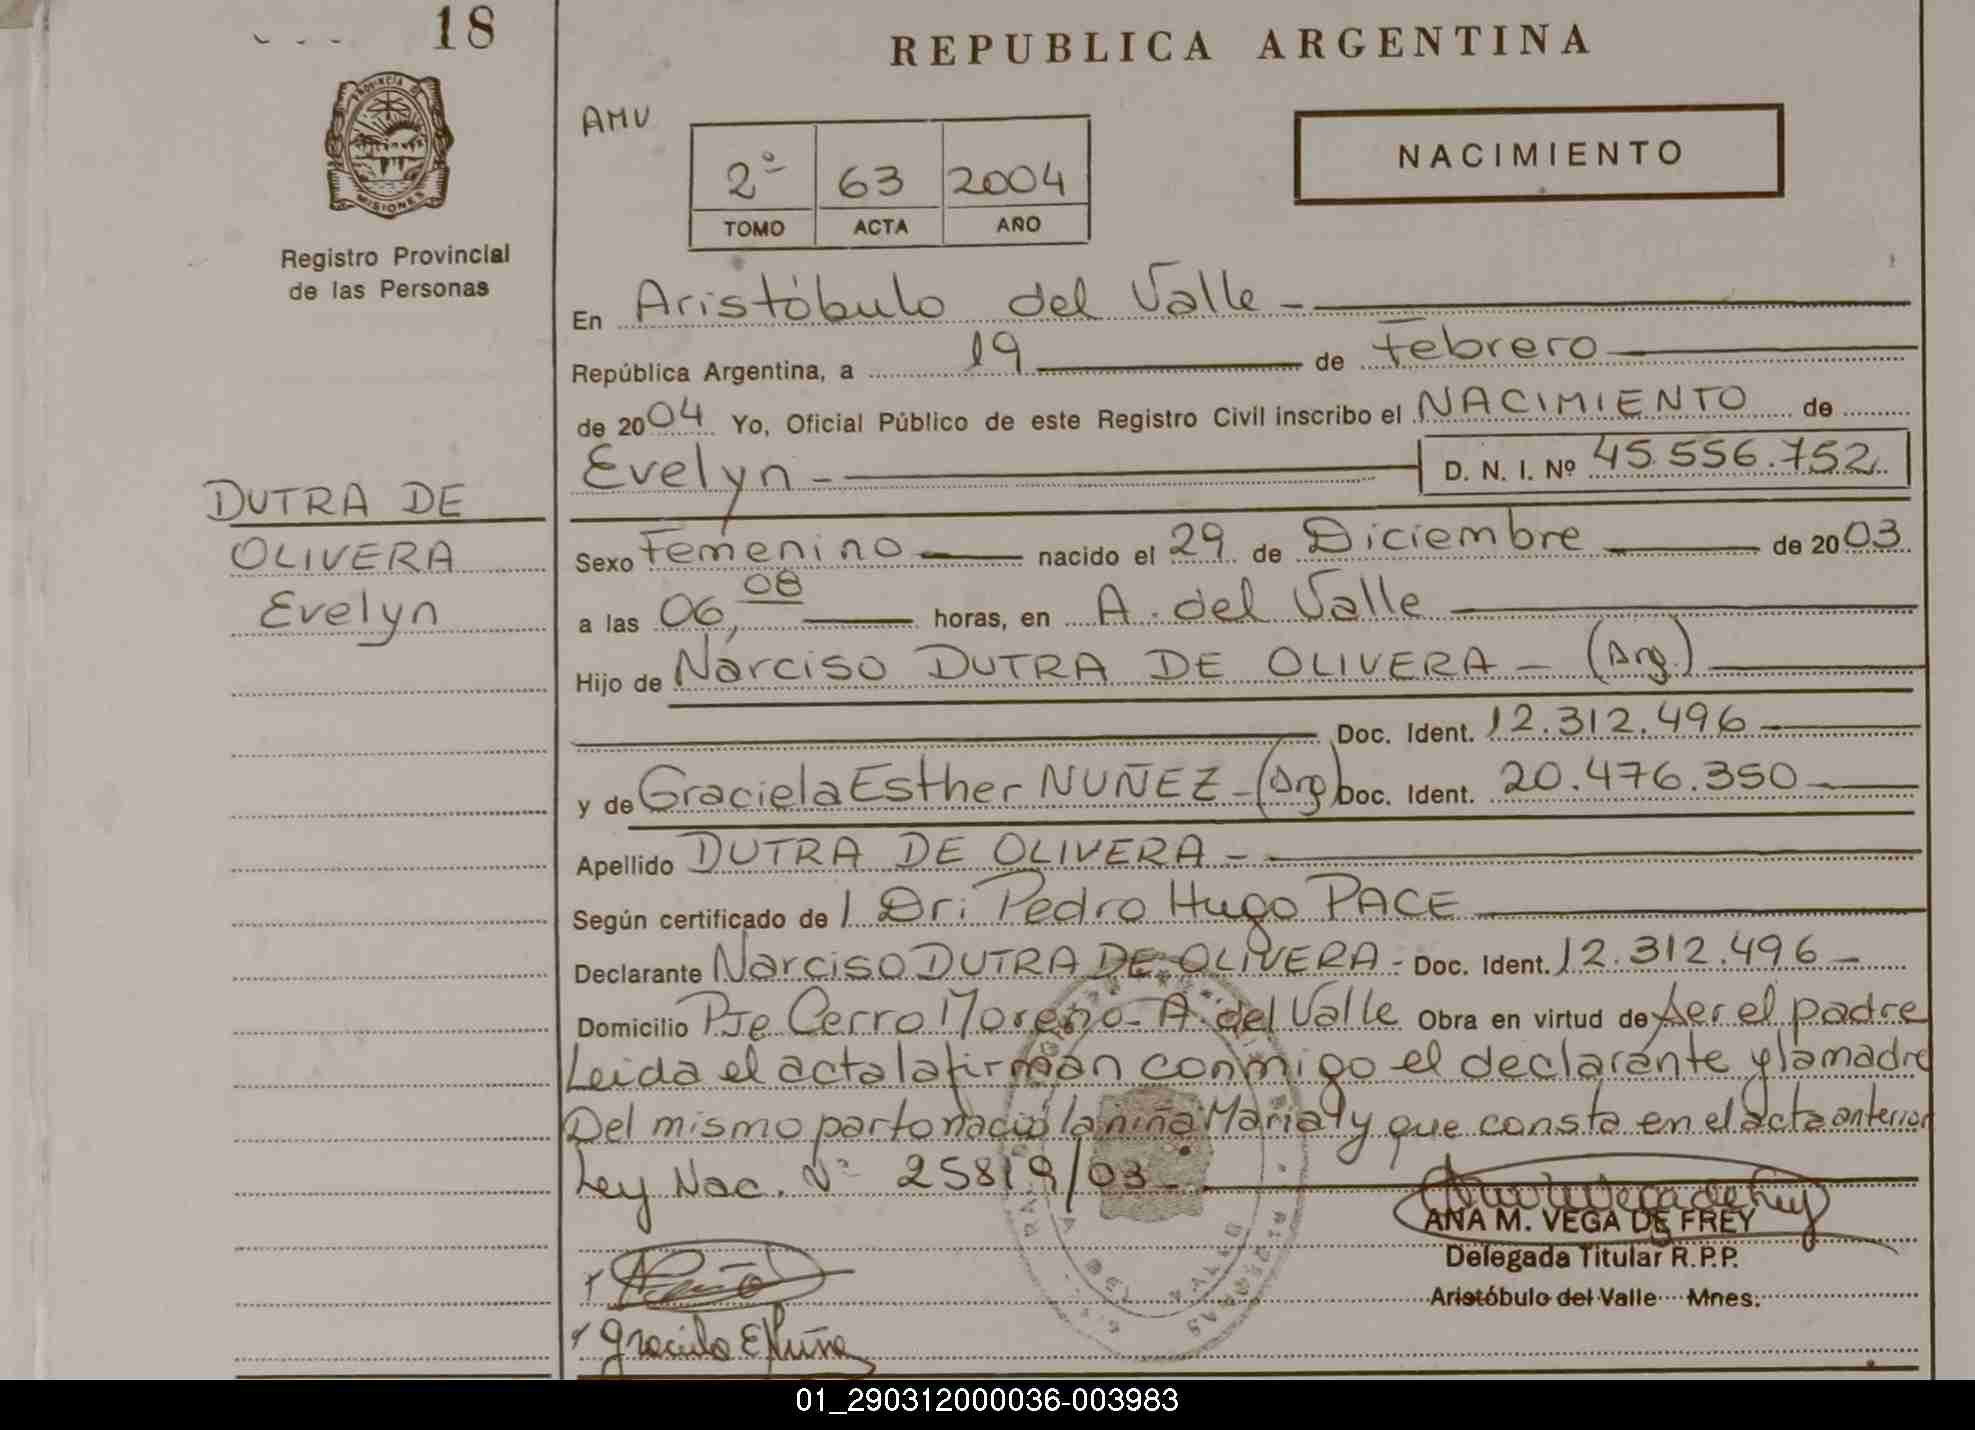 18
PROVINCIA DE
MISIONES
Registro Provincial
de las Personas
DUTRA DE
OLIVERA
Evelyn
REPUBLICA ARGENTINA
AMV
2º 63 2004
TOMO ACTA AÑO
NACIMIENTO
En Aristóbulo del Valle -
República Argentina, a 19 de Febrero
de 2004 Yo, Oficial Público de este Registro Civil inscribo el NACIMIENTO de
Evelyn - D. N. I. Nº 45.556.752
Sexo Femenino nacido el 29 de Diciembre de 2003
a las 06,08 horas, en A. del Valle
Hijo de Narciso DUTRA DE OLIVERA - (Arg.)
Doc. Ident. 12.312.496
y de Graciela Esther NUÑEZ - (Arg) Doc. Ident. 20.476.350
Apellido DUTRA DE OLIVERA -
Según certificado de / Dr: Pedro Hugo PACE
Declarante Narciso DUTRA DE OLIVERA - Doc. Ident. 12.312.496 -
Domicilio Pje Cerro Moreno - A. del Valle Obra en virtud de ser el padre
Leida el acta la firman conmigo el declarante y la madre
Del mismo parto nació la niña Marialy que consta en el acta anterior
Ley Nac. Nº 25819/03
ANA M. VEGA DE FREY
Delegada Titular R.P.P.
Aristóbulo del Valle Mnes.
Graciela E Nuñe
01_290312000036-003983